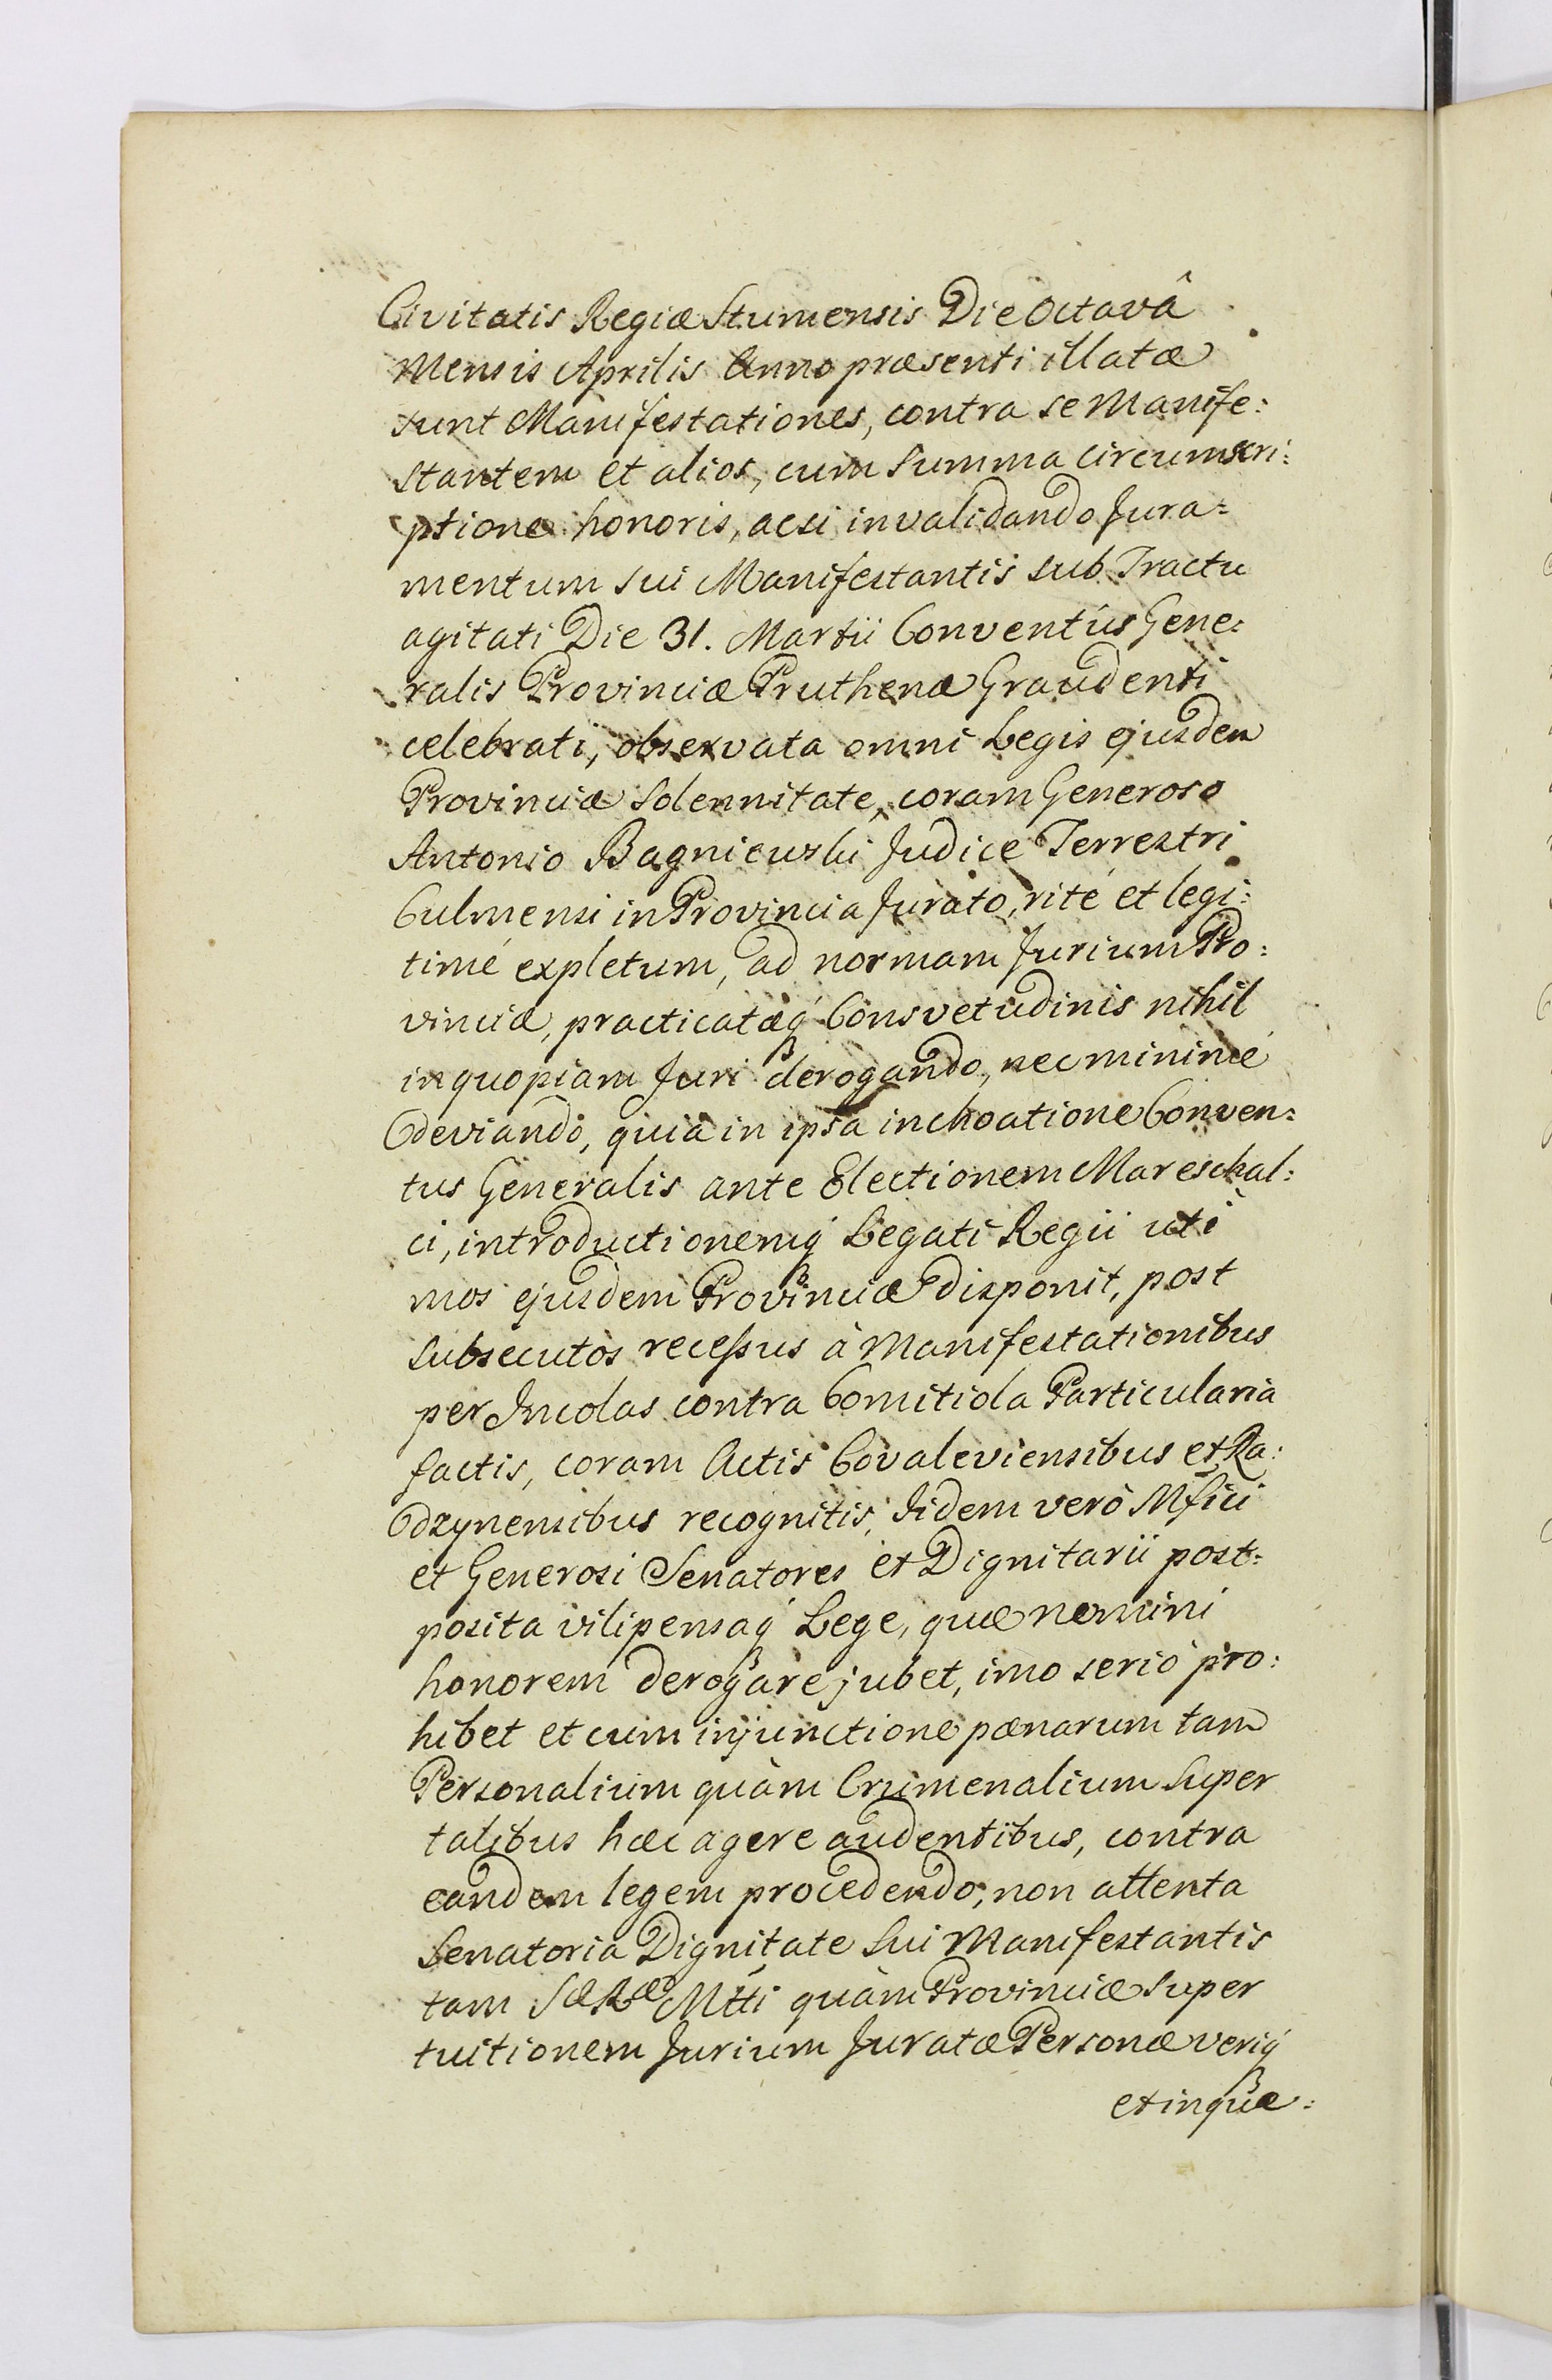 Civitatis Regiæ Stumensis Die Octavâ
Mensis Aprilis Anno præsenti illatæ
sunt Manifestationes, contra se Manife:
stantem et alios, cum summa circumscri:
ptione honoris, acsi invalidando Jura:
mentum sui Manifestantis sub Tractu
agitati Die 31. Martii Conventûs Gene:
ralis Provinciæ Pruthenæ Graudenti
celebrati, observata omni Legis ejusdem
Provinciæ solennitate, coram Generoso
Antonio Bagniewski Judice Terrestri
Culmensi in Provincia Jurato, rité et legi:
timé expletum, ad normam Jurium Pro:
vinciæ, practicatæq́ Consvetudinis nihil
inquopiam Juri derogando, nec minimé
deviando, quia in ipsa inchoatione Conven:
tus Generalis ante Electionem Mareschal:
ci, introductionemq́ Legati Regii uti
mos ejusdem Provinciæ disponit, post
subsecutos recessus à Manifestationibus
per Incolas contra Comitiola Particularia
factis, coram Actis Covaleviensibus et Ra:
dzynensibus recognitis, Iidem verò Mfici
et Generosi Senatores et Dignitarii post:
posita vilipensaq́ Lege, quæ nemini
honorem derogare jubet, imo serió pro:
hibet et cum injunctione pænarum tam
Personalium quàm Crumenalium super
talibus hæc agere audentibus, contra
eandem legem procedendo, non attenta
Senatoria Dignitate sui Manifestantis
tam SæRæ Mtti quàm Provinciæ super
tuitionem Jurium Juratæ Personæ veriq́
et in quæ: